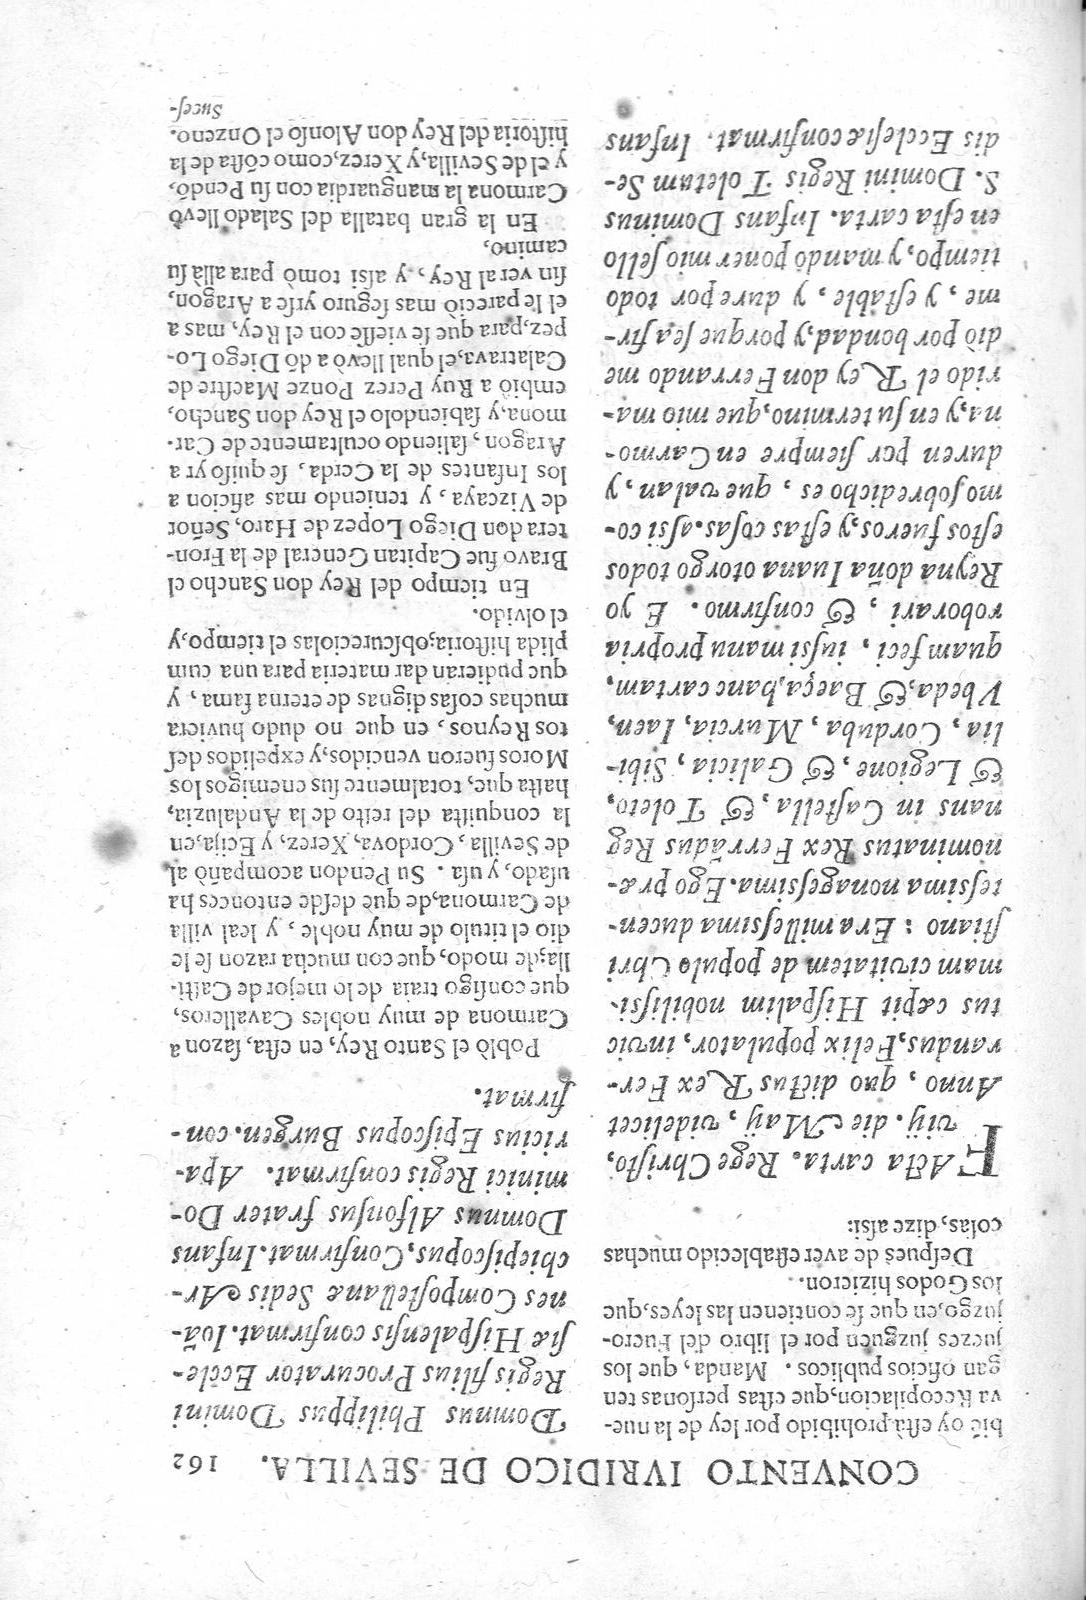 CONVENTO IVRIDICO DE SEVILLA. 162
biẽ oy està prohibido por ley de la nue-
va Recopilacion, que estas personas ten
gan oficios publicos. Manda, que los
juezes juzguen por el libro del Fuero-
juzgo, en que se contienen las leyes, que
los Godos hizieron.
Despues de aver establecido muchas
cosas, dize assi:
FActa carta. Rege Christo,
viij. die Maij, videlicet
Anno, quo dictus Rex Fer-
randus, Felix populator, invic
tus cæpit Hispalim nobilissi-
mam civitatem de populo Chri
stiano: Era millessima ducen-
tessima nonagessima. Ego præ-
nominatus Rex Ferrãdus Reg
nans in Castella, & Toleto,
& Legione, & Galicia, Sibi-
lia, Corduba, Murcia, Iaen,
Vbeda, & Baeça, hanc cartam,
quam feci, iussi manu propria
roborari, & confirmo. E yo
Reyna doña Iuana otorgo todos
estos fueros, y estas cosas, assi co-
mo sobredicho es, que valan, y
duren per siempre en Carmo-
na, y en su termino, que mio ma-
rido el Rey don Ferrando me
diò por bondad, y porque sea fir-
me, y estable, y dure por todo
tiempo, y mando poner mio sello
en esta carta. Infans Dominus
S. Domini Regis Toletam Se-
dis Ecclesiæ confirmat. Infans
Domnus Philippus Domini
Regis filius Procurator Eccle-
siæ Hispalensis confirmat. Ioã-
nes Compostellanæ Sedis Ar-
chiepiscopus, Confirmat. Infans
Domnus Alfonsus frater Do-
minici Regis confirmat. Apa-
ricius Episcopus Burgen. con-
firmat.
Poblò el Santo Rey, en esta, sazon a
Carmona de muy nobles Cavalleros,
que consigo traia de lo mejor de Casti-
lla; de modo, que con mucha razon se le
dio el titulo de muy noble, y leal villa
de Carmona, de què desde entonces ha
usado, y usa. Su Pendon acompañò al
de Sevilla, Cordova, Xerez, y Ecija, en
la conquista del resto de la Andaluzia,
hasta que, totalmente sus enemigos los
Moros fueron vencidos, y expelidos des
tos Reynos, en que no dudo huviera
muchas cosas dignas de eterna fama, y
que pudieran dar materia para una cum
plida historia; obscureciolas el tiempo, y
el olvido.
En tiempo del Rey don Sancho el
Bravo fue Capitan General de la Fron-
tera don Diego Lopez de Haro, Señor
de Vizcaya, y teniendo mas aficion a
los Infantes de la Cerda, se quiso yr a
Aragon, saliendo ocultamente de Car-
mona, y sabiendolo el Rey don Sancho,
embiò a Ruy Perez Ponze Maestre de
Calatrava, el qual llevò a dõ Diego Lo-
pez, para què se viesse con el Rey, mas a
el le pareciò mas seguro yrse a Aragon,
sin ver al Rey, y assi tomò para allà su
camino,
En la gran batalla del Salado llevò
Carmona la manguardia con su Pendõ,
y el de Sevilla, y Xerez, como cõsta de la
historia del Rey don Alonso el Onzeno.
Suces-